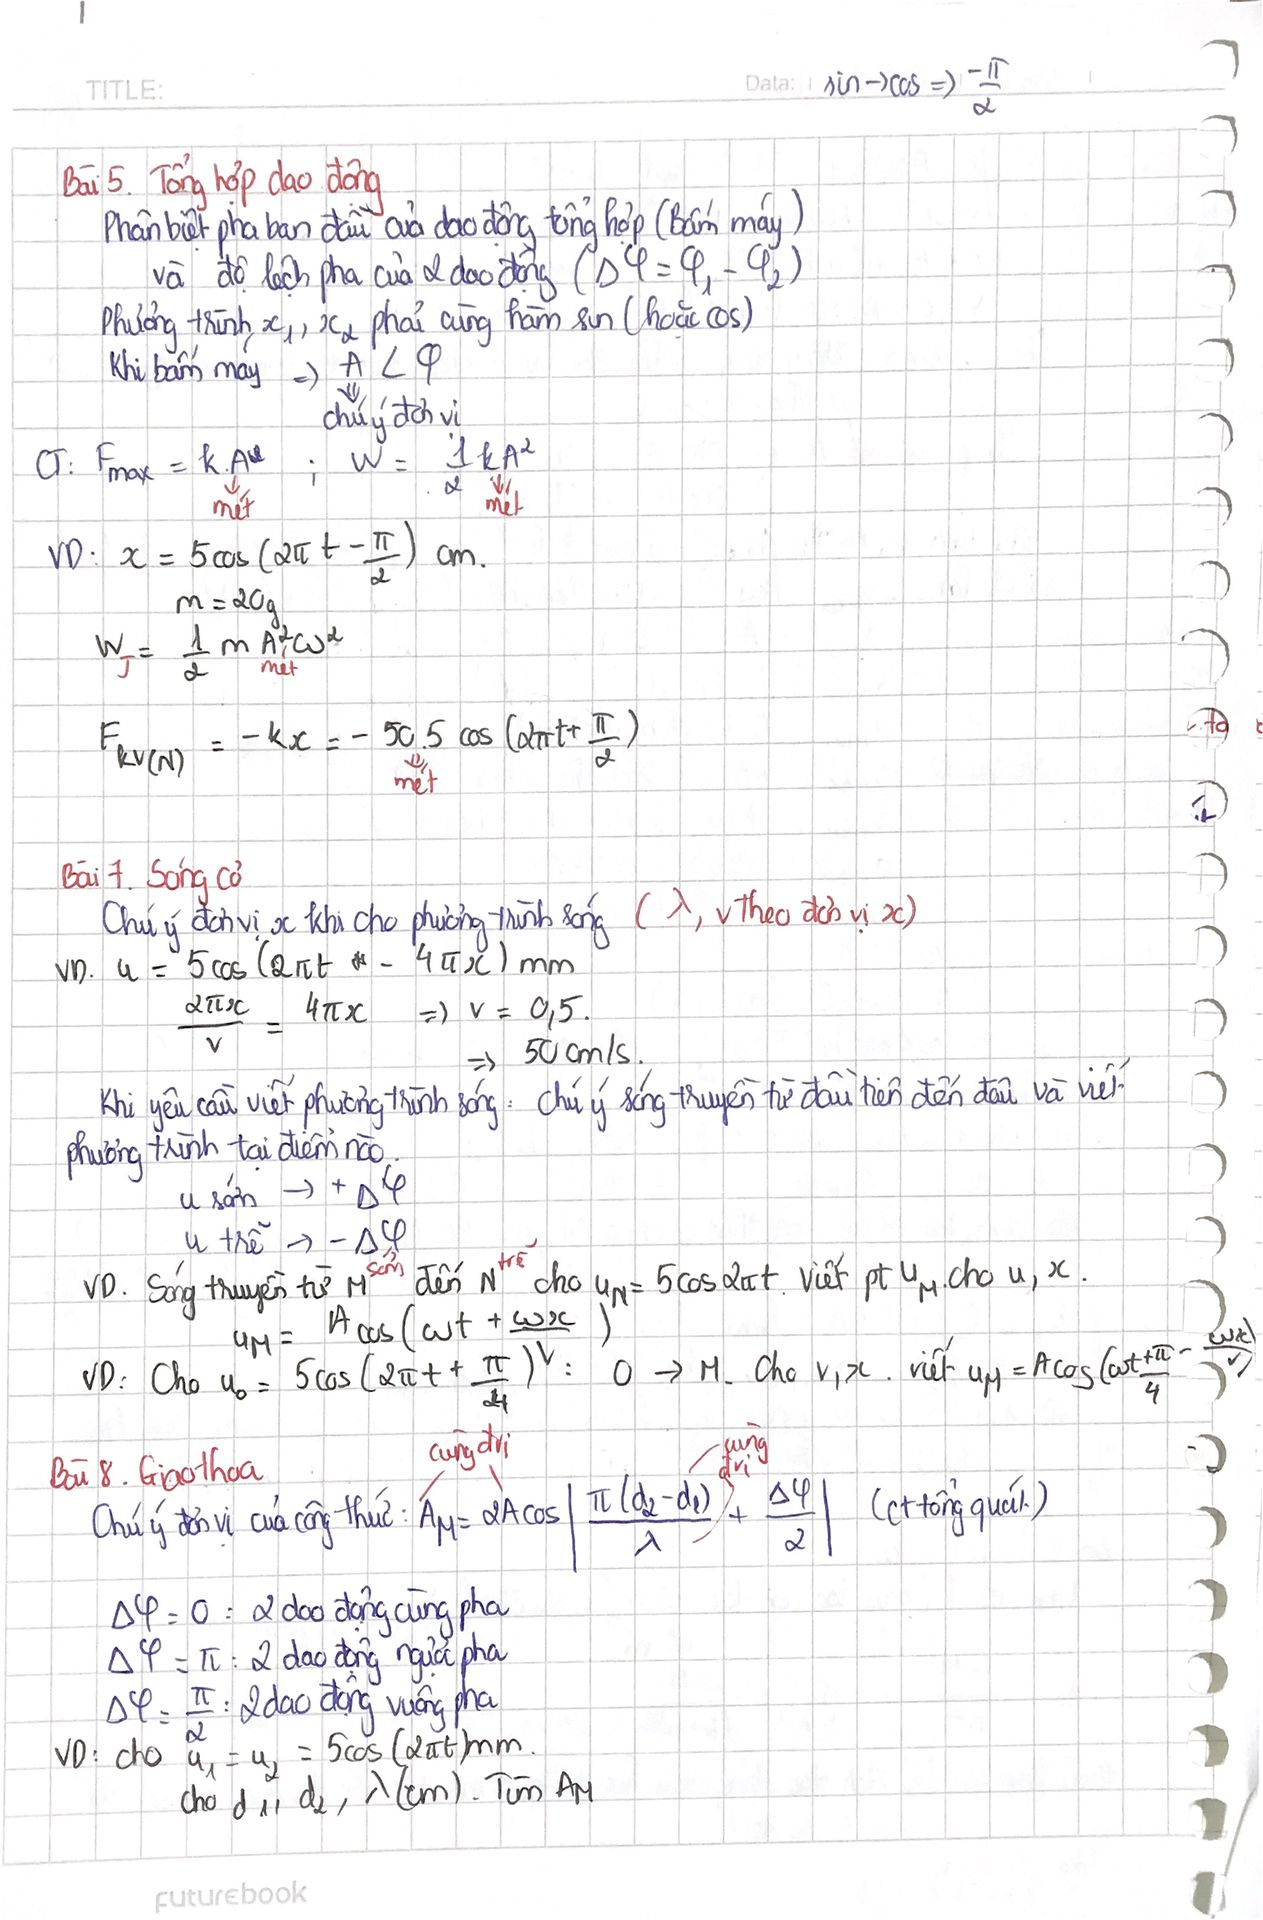 TITLE:
Data: sin → cos => -π/2
Bài 5. Tổng hợp dao động
Phân biệt pha ban đầu của dao động tổng hợp (Bấm máy)
và độ lệch pha của 2 dao động (Δφ = φ₁ - φ₂)
Phương trình x₁, x₂ phải cùng hàm sin (hoặc cos)
Khi bấm máy => A ∠ φ
chú ý đơn vị
CT: Fmax = k.A ; W = 1/2 kA²
mét mét
VD: x = 5cos(2πt - π/2) cm.
m = 20g
W_J = 1/2 m A²ω²
mét
F_kv(N) = -kx = - 50.5 cos (2πt + π/2)
mét
Bài 7. Sóng cơ
Chú ý đơn vị x khi cho phương trình sóng (λ, v theo đơn vị x)
VD. u = 5cos(2πt - 4πx) mm
2πx/v = 4πx => v = 0,5.
=> 50 cm/s.
Khi yêu cầu viết phương trình sóng. Chú ý sóng truyền từ đâu tiên đến đâu và viết
phương trình tại điểm nào.
u sớm → + Δφ
u trễ → - Δφ
sớm trễ
VD. Sóng truyền từ M đến N cho u_N = 5cos2πt. Viết pt u_M. cho u, x.
u_M = Acos(ωt + ωx/v)
VD: Cho u₀ = 5cos(2πt + π/4): O → M. Cho v, x. viết u_M = Acos(ωt + π/4 - ωx/v)
cùng đvị cùng đvị
Bài 8. Giao thoa
Chú ý đơn vị của công thức: A_M = 2Acos|π(d₂ - d₁)/λ + Δφ/2| (ct tổng quát.)
Δφ = 0 : 2 dao động cùng pha
Δφ = π : 2 dao động ngược pha
Δφ = π/2 : 2 dao động vuông pha
VD: cho u₁ = u₂ = 5cos(2πt) mm.
cho d₁, d₂, λ (cm). Tìm A_M
futurebook